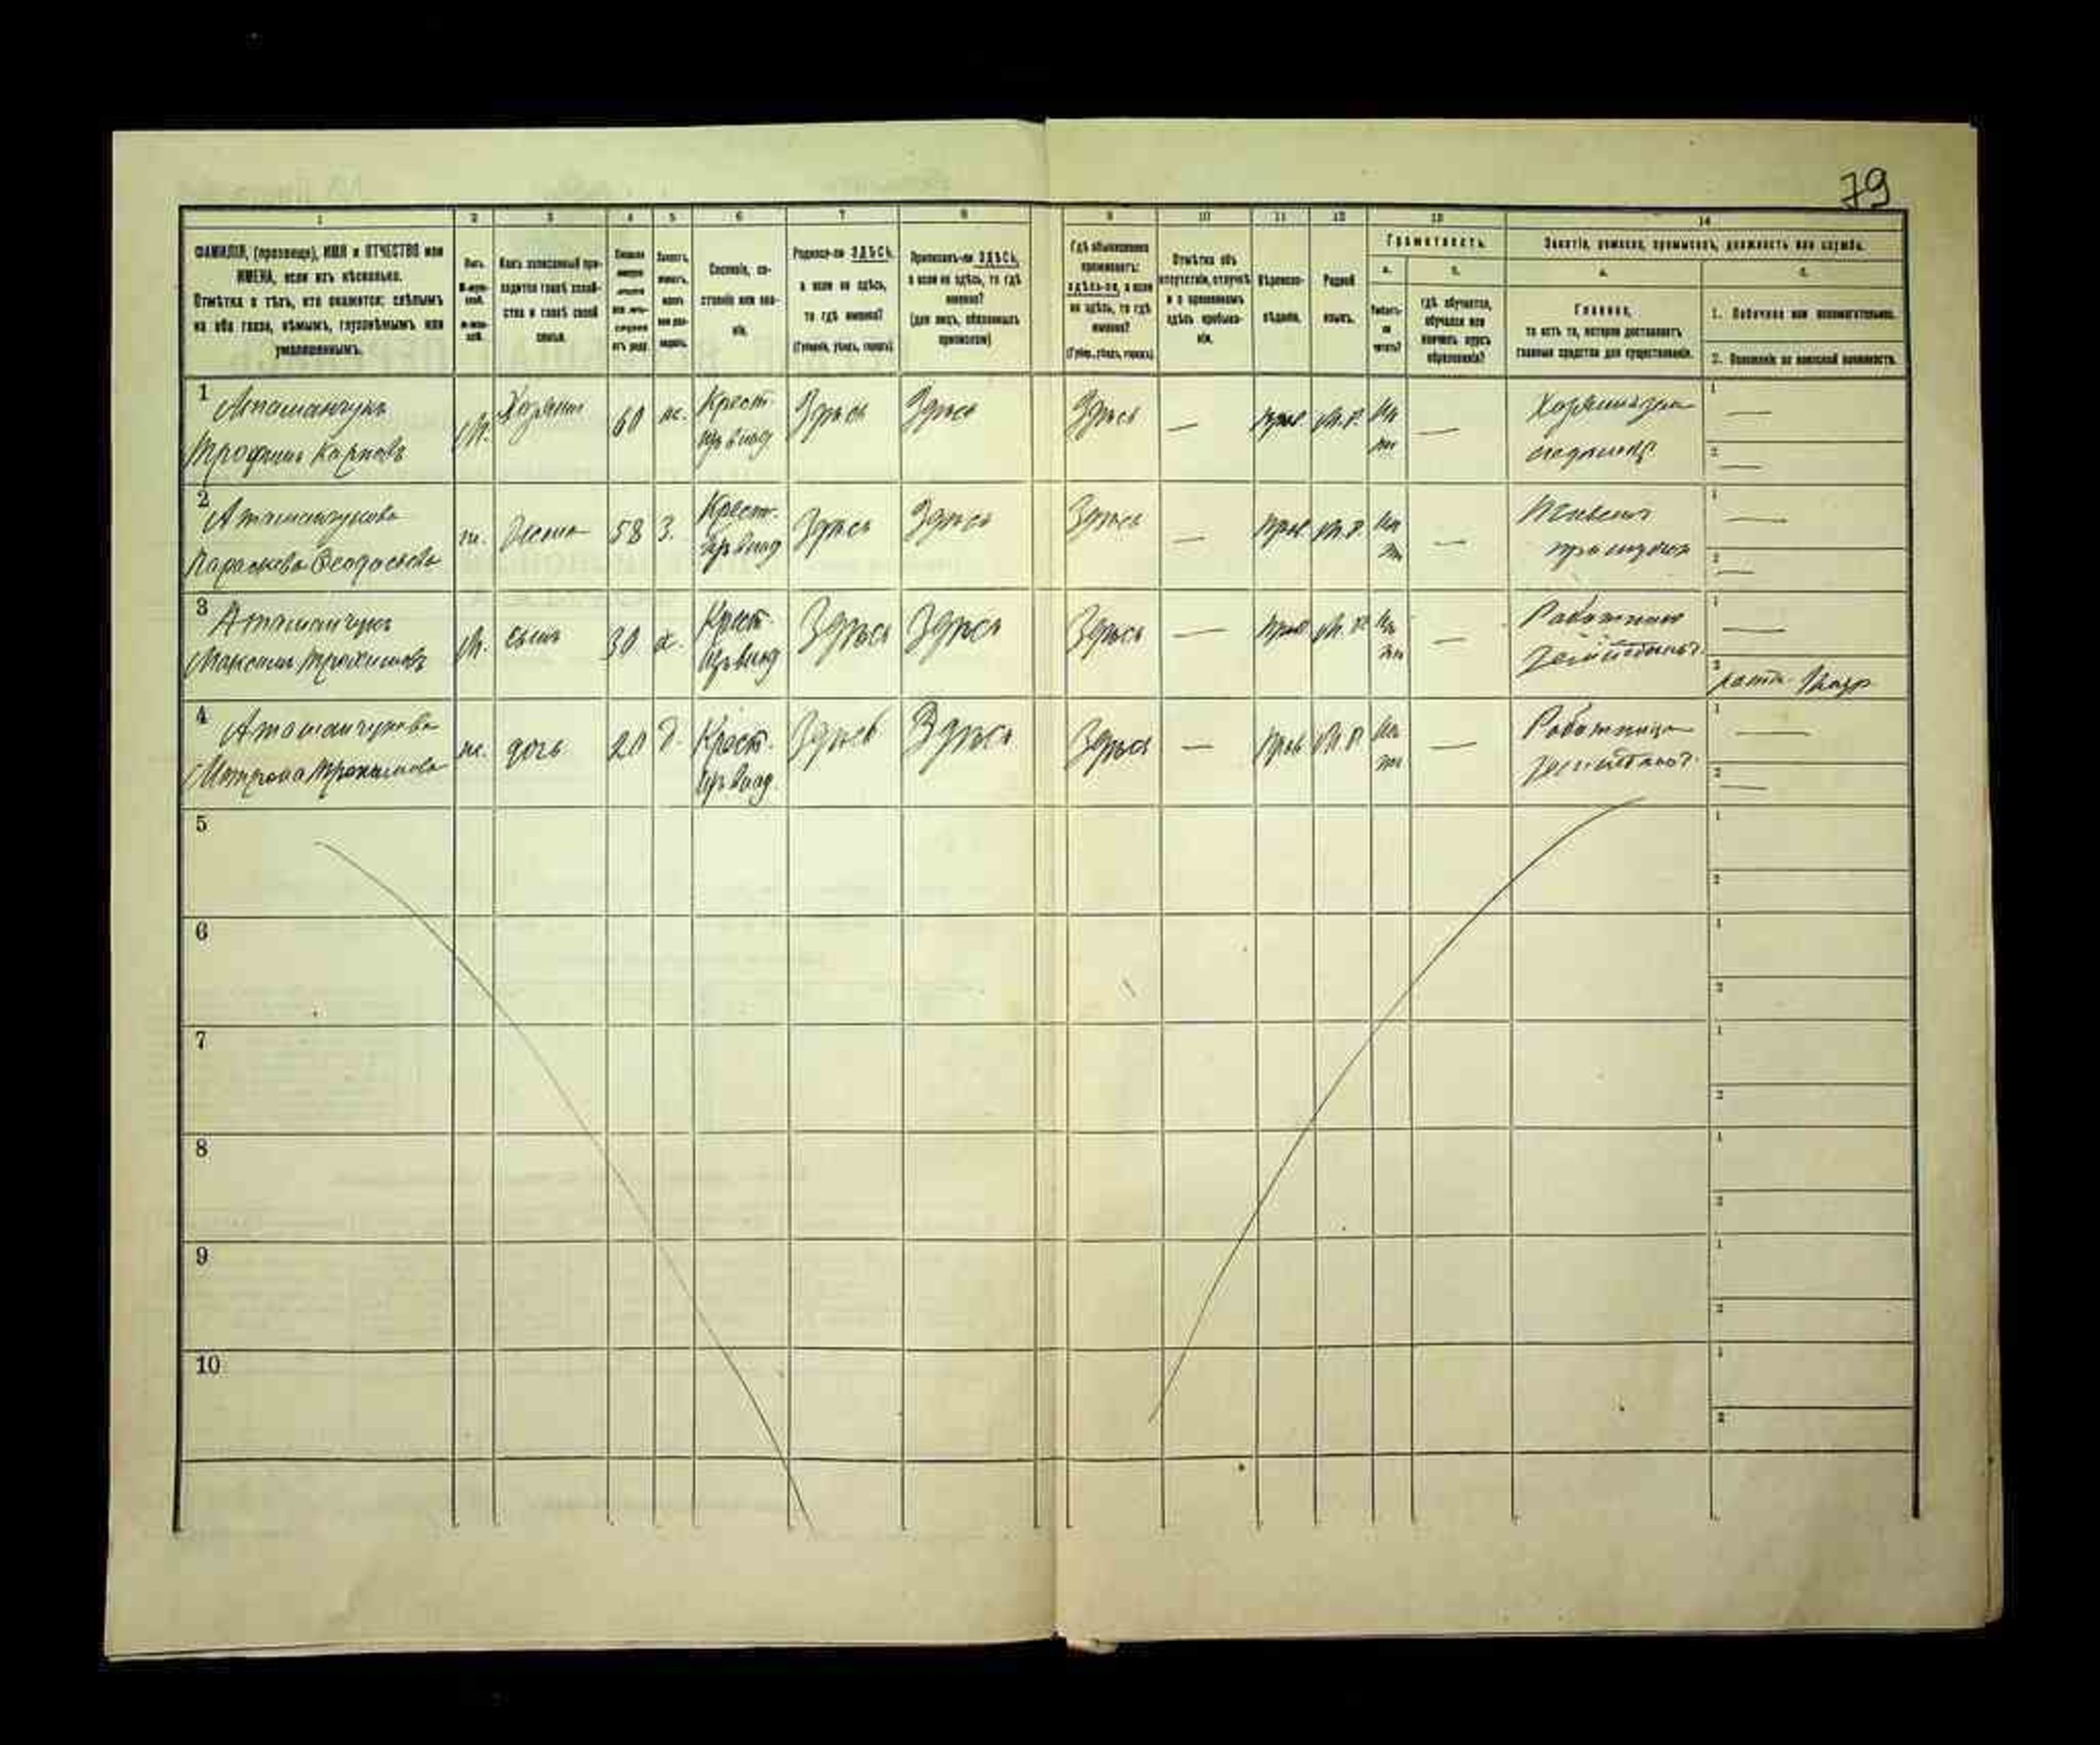 79
1 2 3 4 5 6 7 8 9 10 11 12 13 14
ФАМИЛІЯ, (прозвище), ИМЯ и ОТЧЕСТВО или
ИМЕНА, если ихъ нѣсколько.
Отмѣтка о тѣхъ, кто окажется: слѣпымъ
на оба глаза, нѣмымъ, глухонѣмымъ или
умалишеннымъ.
Полъ.
М-муж-
ской.
Ж-жен-
скій.
Какъ записанный при-
ходится главѣ хозяй-
ства и главѣ своей
семьи.
Сколько
минуло
лѣтъ
или мѣ-
сяцевъ
отъ роду.
Холостъ,
женатъ,
вдовъ
или раз-
веденъ.
Сословіе, со-
стояніе или зва-
ніе.
Родился-ли ЗДѢСЬ,
а если не здѣсь,
то гдѣ именно?
(Губернія, уѣздъ, городъ)
Приписанъ-ли ЗДѢСЬ,
а если не здѣсь, то гдѣ
именно?
(для лицъ, обязанныхъ
припиской)
Гдѣ обыкновенно
проживаетъ:
здѣсь-ли, а если
не здѣсь, то гдѣ
именно?
(Губер., уѣздъ, городъ)
Отмѣтка объ
отсутствіи, отлучкѣ
и о временномъ
здѣсь пребыва-
ніи.
Вѣроиспо-
вѣданіе.
Родной
языкъ.
Грамотность.
а.
Умѣетъ-
ли
читать?
б.
гдѣ обучается,
обучался или
кончилъ курсъ
образованія?
Занятіе, ремесло, промыселъ, должность или служба.
а.
Главное,
то есть то, которое доставляетъ
главныя средства для существованія.
б.
1. Побочное или вспомогательное.
2. Положеніе по воинской повинности.
1 Атаманчукъ
Трофимъ Карповъ
М. Хозяинъ 60 ж. Крест. Здѣсь Здѣсь Здѣсь — прав. М.Р. —
1 —
2 —
2 Атаманчукова
Параскева Феодосьева
ж. 58 З. Крест. Здѣсь Здѣсь Здѣсь — прав. М.Р. —
Живетъ
1 —
2 —
3 Атаманчукъ
Максимъ Трохимовъ
М. сынъ 30 Крест. Здѣсь Здѣсь Здѣсь — прав. М.Р. —
1 —
2
4 Атаманчукова
Матрона Трохимова
ж. дочь 20 Д. Крест. Здѣсь Здѣсь Здѣсь — прав. М.Р. —
Работница
1 —
2 —
5
1
2
6
1
2
7
1
2
8
1
2
9
1
2
10
1
2